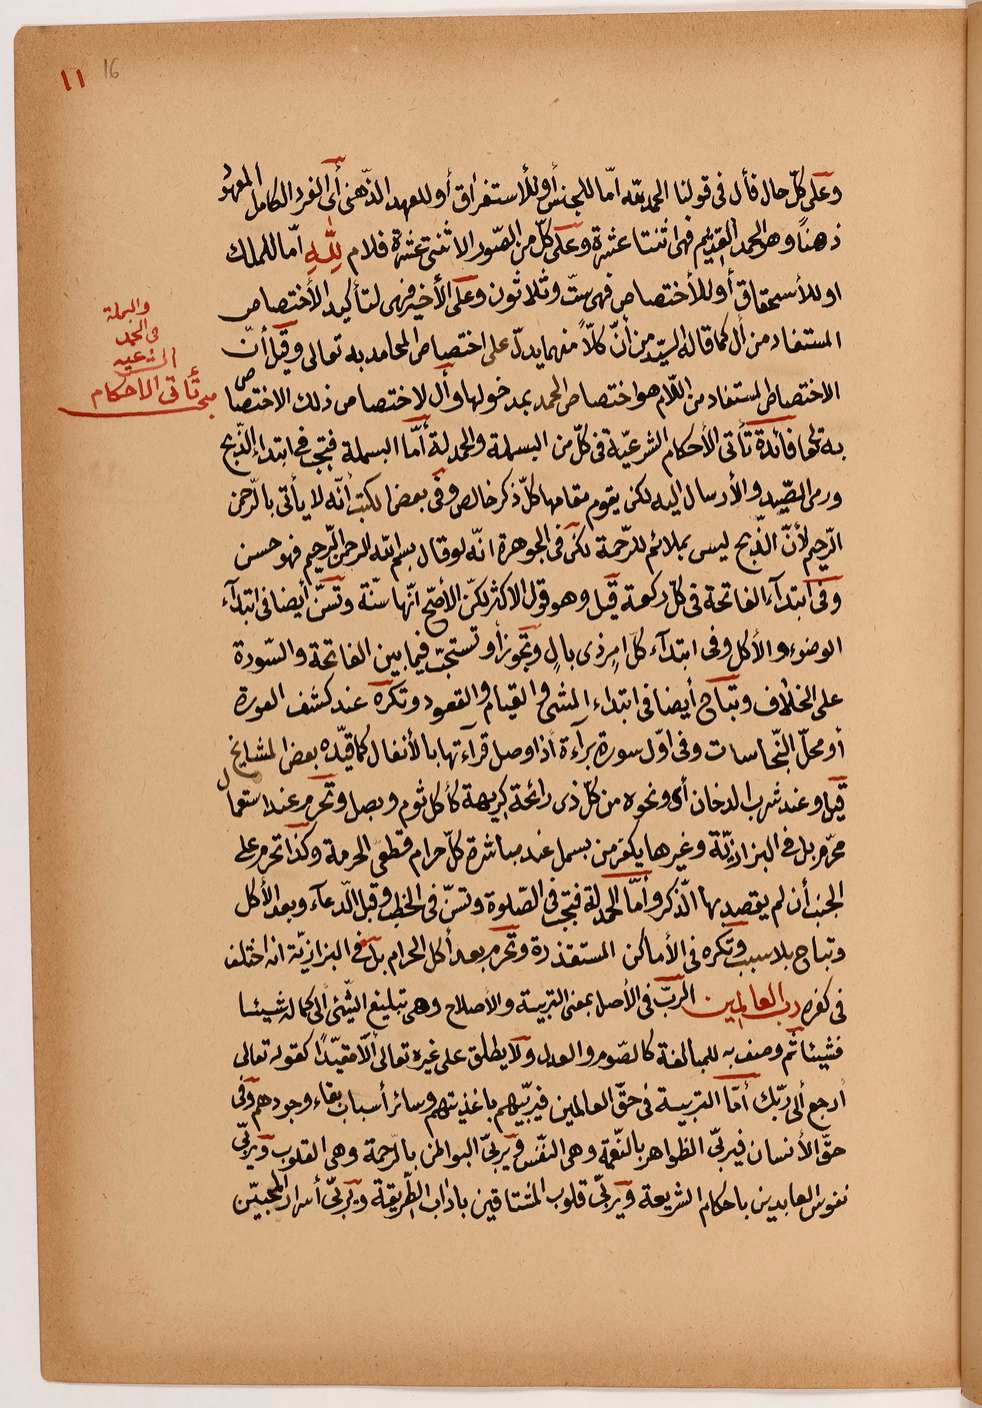 ١١ 16
وعلى كلّ حال فأل في قولنا الحمد لله امّا للجنس أو للأستغراق أو للعهد الذّهنى أى الفرد الكامل المعهود
ذهنًا وهو الحمد القديم فهى اثنتا عشرة وعلى كلّ من الصّور الاثنتى عشرة فلام لِلّٰهِ امّا للملك
او للأستحقاق أو للأختصاص فهى ستّ وثلاثون وعلى الأخير فهى لتأكيد الأختصاص
المستفاد من أل كما قاله السيّد من أنّ كلّاً منهما يدلّ على اختصاص المحامد به تعالى وقيل أنّ
الاختصاص المستفاد من اللّام هو اختصاص الحمد بمدخولها وأل لاختصاص ذلك الاختصاص
به تعالى فائدة تأتى الأحكام الشرعيّة فى كلّ من البسملة والحمدلة أمّا البسملة فتجب فى ابتداء الذّبح
ورمى الصّيد والأرسال اليه لكن يقوم مقامها كلّ ذكر خالص وفى بعض الكتب أنّه لا يأتى بالرّحمن
الرّحيم لأنّ الذّبح ليس بملائم للرّحمة لكن فى الجوهرة انّه لو قال بسم الله الرحمن الرّحيم فهو حسن
وفى ابتدآء الفاتحة فى كلّ ركعة قيل وهو قول الاكثر لكنّ الأصحّ انّها سنّة وتسنّ أيضا فى ابتدآء
الوضوء والأكل وفى ابتدآء كلّ امرٍ ذى بالٍ وتجوز أو تستحبّ فيما بين الفاتحة والسّورة
على الخلاف وتباح أيضا فى ابتداء المشى والقيام والقعود وتكره عند كشف العورة
أو محلّ النّجاسات وفى اوّل سورة برآءة أذا وصل قرآءتها بالأنفال كما قيّده بعض المشايخ
قيل وعند شرب الدخان أى ونحوه من كلّ ذى رائحة كريهة كأكل ثوم وبصل وتحرم عند استعمال
محرّم بل فى البزازيّة وغيرها يكفر من بسمل عند مباشرة كلّ حرام قطعى الحرمة وكذا تحرم على
الجنب أن لم يقصد بها الذّكر وأمّا الحمدلة فتجب فى الصّلوة وتسنّ فى الخطب وقبل الدّعآء وبعد الأكل
وتباح بلا سبب وتكره فى الأماكن المستقذرة وتحرم بعد أكل الحرام بل فى البزازيّة انه اختلف
فى كفره رب العالمين الربّ فى الأصل بمعنى التربية والأصلاح وهى تبليغ الشّئ ألى كماله شيئا
فشيئا ثم وصف به للمبالغة كالصّوم والعدل ولا يطلق على غيره تعالى ألّا مقيّدًا كقوله تعالى
أرجع ألى ربّك أمّا التربية فى حقّ العالمين فيربّيهم باغذيتهم وسائر أسباب بقاء وجودهم وفى
حقّ الأنسان فيربّى الظواهر بالنّعمة وهى النّفس ويربّى البواطن بالرّحمة وهى القلوب ويربّى
نفوس العابدين باحكام الشريعة ويربّى قلوب المشتاقين باداب الطّريقة ويربّى أسرار المحبّين
والبسملة
فى الحمد
الشرعيه
مبحث تأتى الاحكام